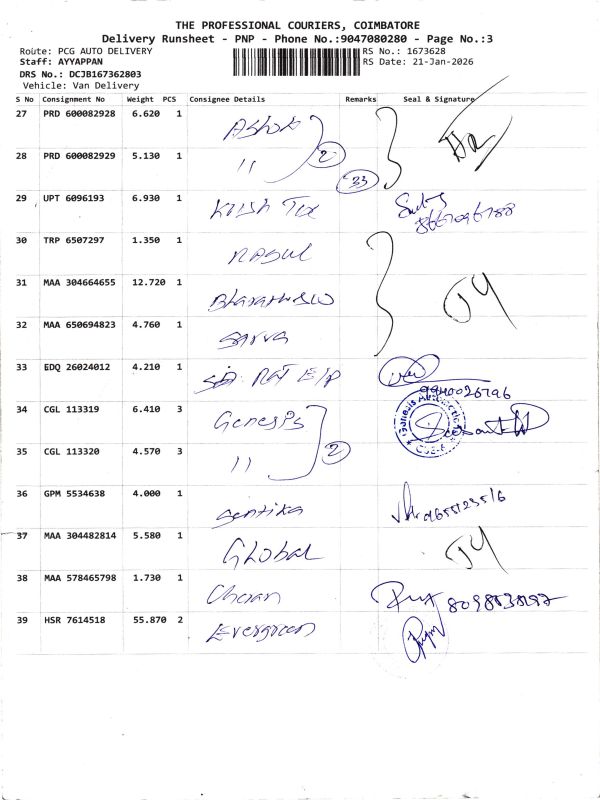 THE PROFESSIONAL COURIERS, COIMBATORE
Delivery Runsheet - PNP - Phone No.:9047080280 - Page No.:3
Route: PCG AUTO DELIVERY
RS No.: 1673628
Staff: AYYAPPAN
RS Date: 21-Jan-2026
DRS No.: DCJB167362803
Vehicle: Van Delivery
S No Consignment No Weight PCS Consignee Details Remarks Seal & Signature
27 PRD 600082928 6.620 1 Ashok
28 PRD 600082929 5.130 1 11 2
33
29 UPT 6096193 6.930 1 Krish Tex
30 TRP 6507297 1.350 1 Rasul
31 MAA 304664655 12.720 1
32 MAA 650694823 4.760 1 Sarva
33 EDQ 26024012 4.210 1
34 CGL 113319 6.410 3 Genesis
35 CGL 113320 4.570 3 11 2
36 GPM 5534638 4.000 1
37 MAA 304482814 5.580 1 Global
38 MAA 578465798 1.730 1 Cheran
39 HSR 7614518 55.870 2 Evergreen